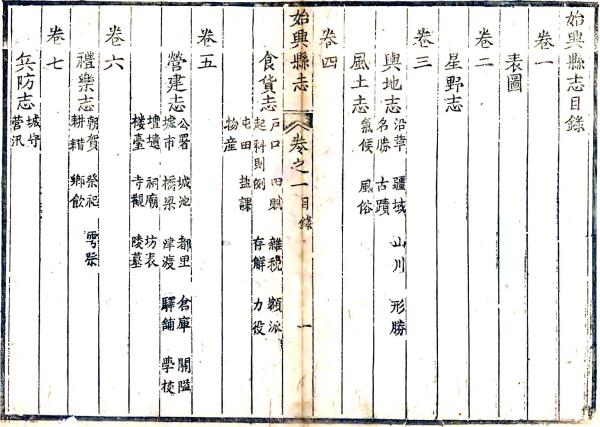 始興縣志目錄
卷一
表圖
卷二
星野志
卷三
輿地志
沿革 疆域 山川 形勝
名勝 古蹟
風土志
氣候 風俗
卷四
始興縣志 卷之一 目錄 一
食貨志
戶口 田賦 雜稅 額派
起科則例 存解 力役
屯田 鹽課
物產
卷五
營建志
公署 城池 都里 倉庫 關隘
墟市 橋梁 津渡 驛舖 學校
壇壝 祠廟 坊表
樓臺 寺觀 陵墓
卷六
禮樂志
朝賀 祭祀 雩禜
耕耤 鄉飲
卷七
兵防志
城守
營汛